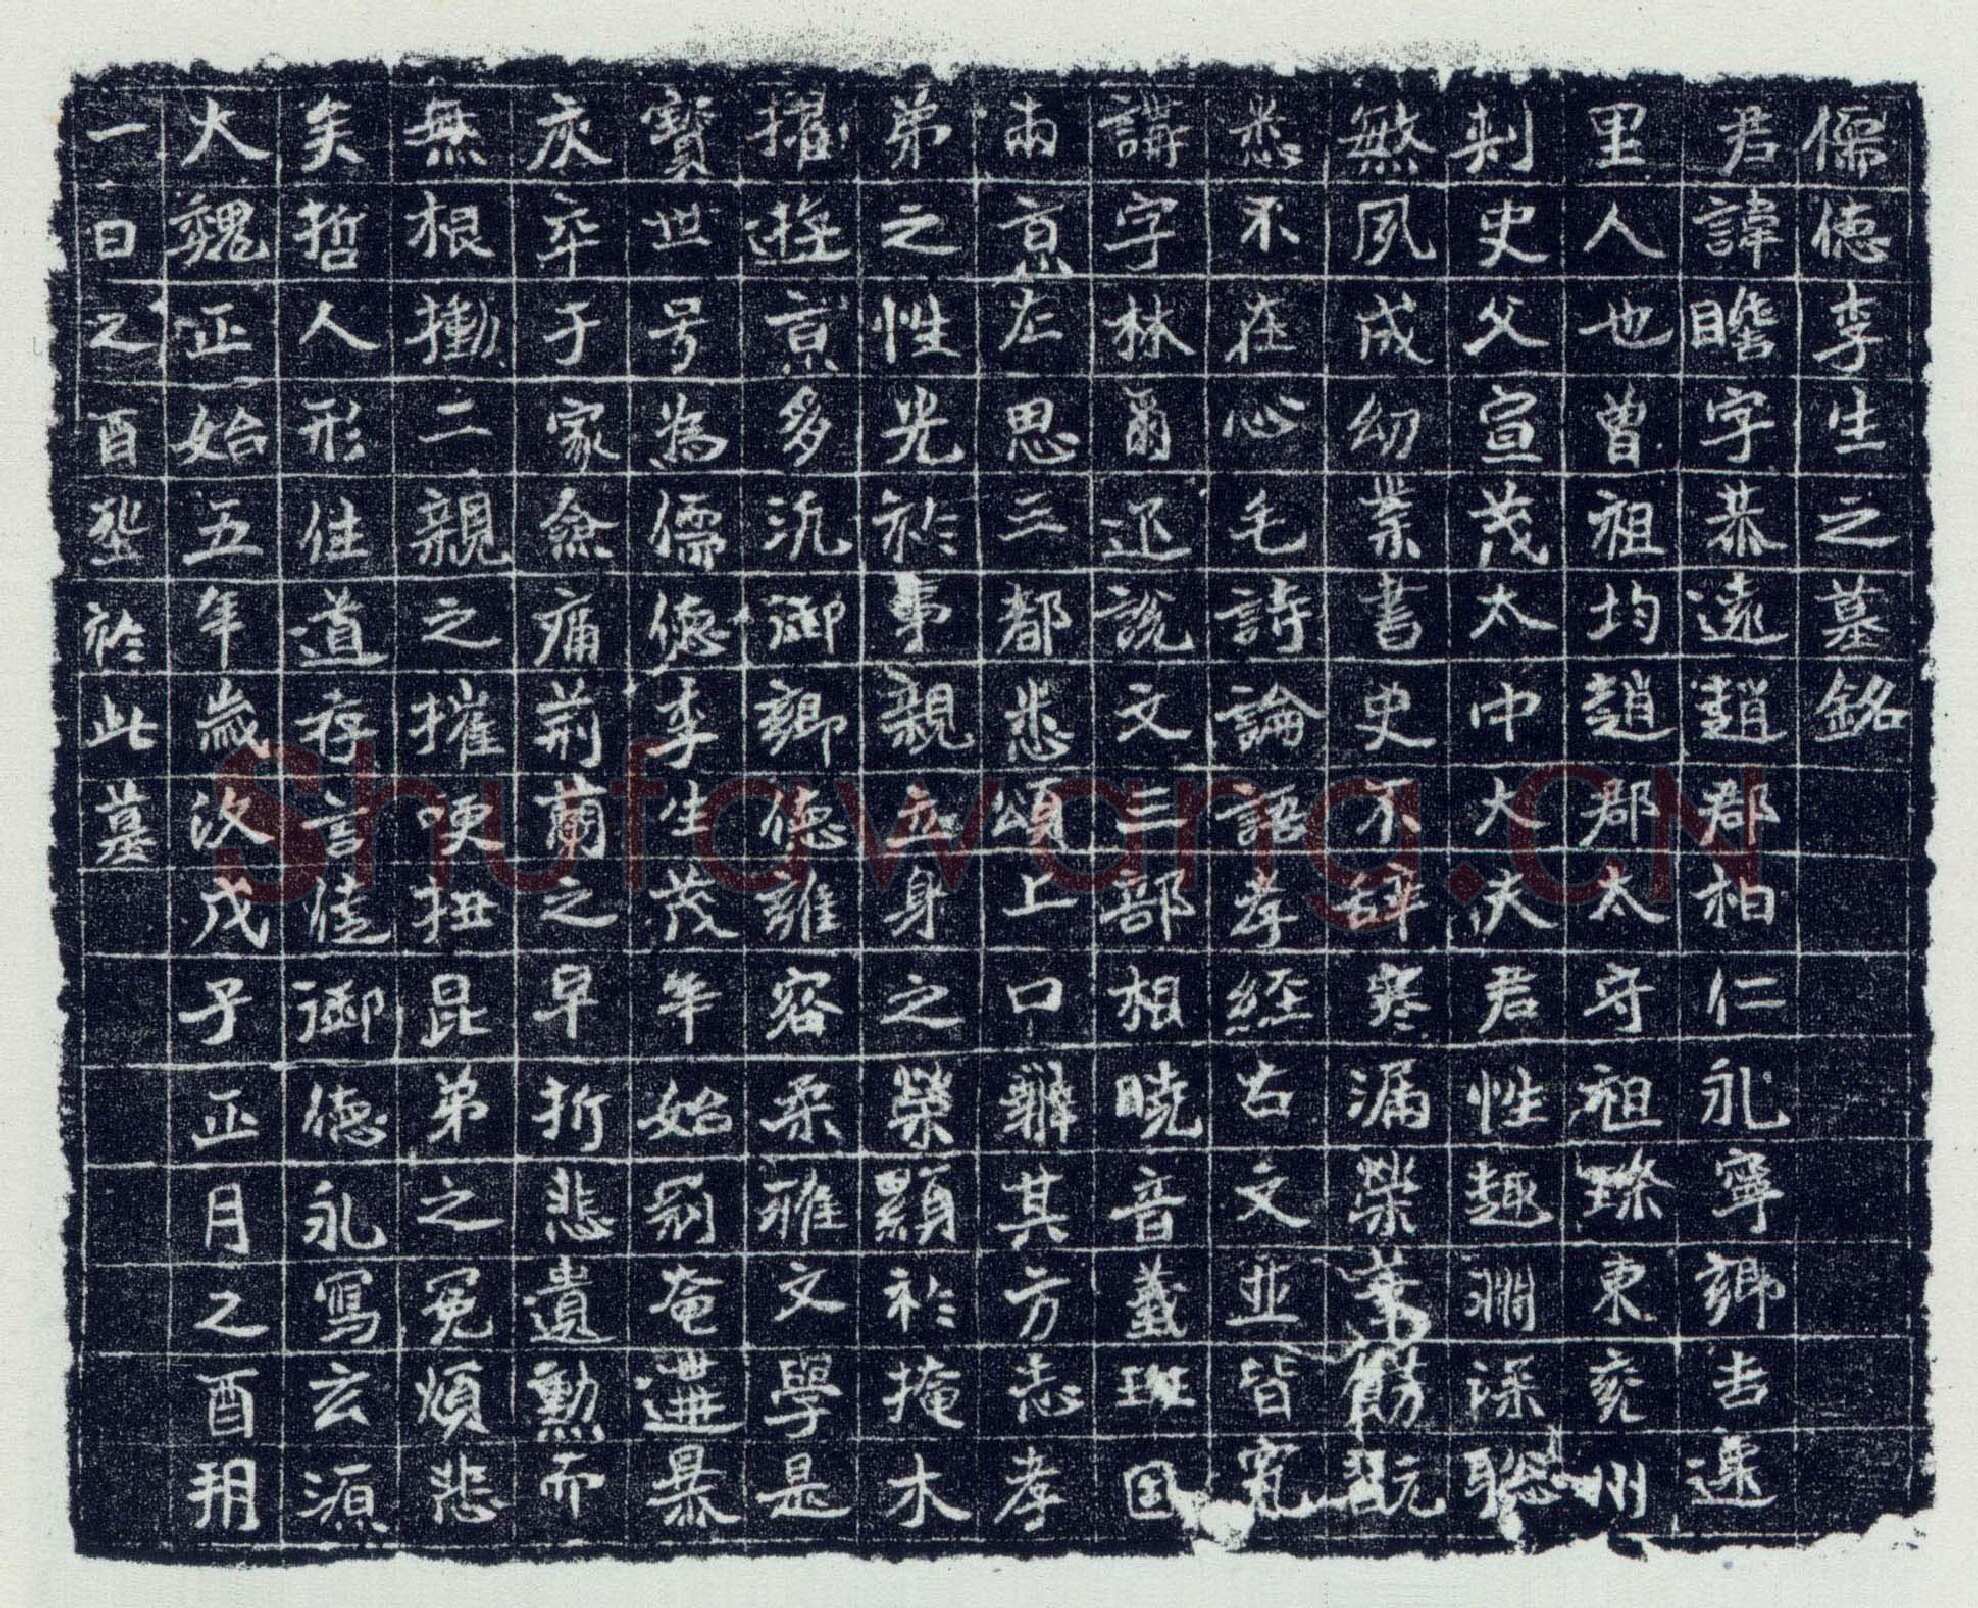 儒德李生之墓銘
君諱瞻字恭遠趙郡柏仁永寧鄉吉遷
里人也曾祖均趙郡太守祖璨東兗州
刺史父宣茂太中大夫君性趣淵深聰
慜夙成幼業書史不辞寒漏榮飭翫
悉不在心毛詩論語孝經古文並皆究
講字林爾迩說文三部相曉音義班固
兩京左思三都悉頌上口辭其方志孝
弟之性光於事親立身之榮顯於掩木
擢遊京多汎御鄉德雍容柔雅文學是
寶世号為儒德李生茂年始奄遘暴
灾卒于家僉痛荊蘭之早折悲遺勳而
無根慟二親之摧哽扭昆弟之冤煩悲
矣哲人形往道存言恠御德永寫云源
大魏正始五年歲次戊子正月之酉朔
一日之酉埊於此墓
Shufawang.CN